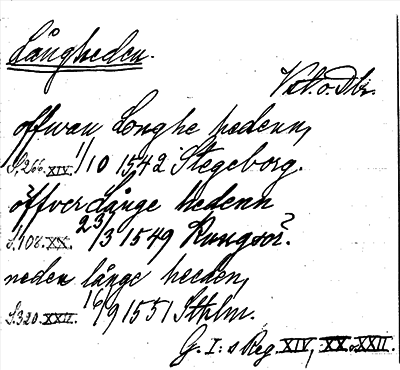 Långheden.
Vstm. o. Dlr.
offwan Longhe hedenn,
S. 266. XIV. 11/10 1542 Stegeborg.
öffver Långe hedenn
S. 108. XX. 23/3 1549 Kungsör.
neden långe heeden,
S. 320. XXII. 16/9 1551 Sthlm.
G. I:s Reg. XIV, XX o. XXII.